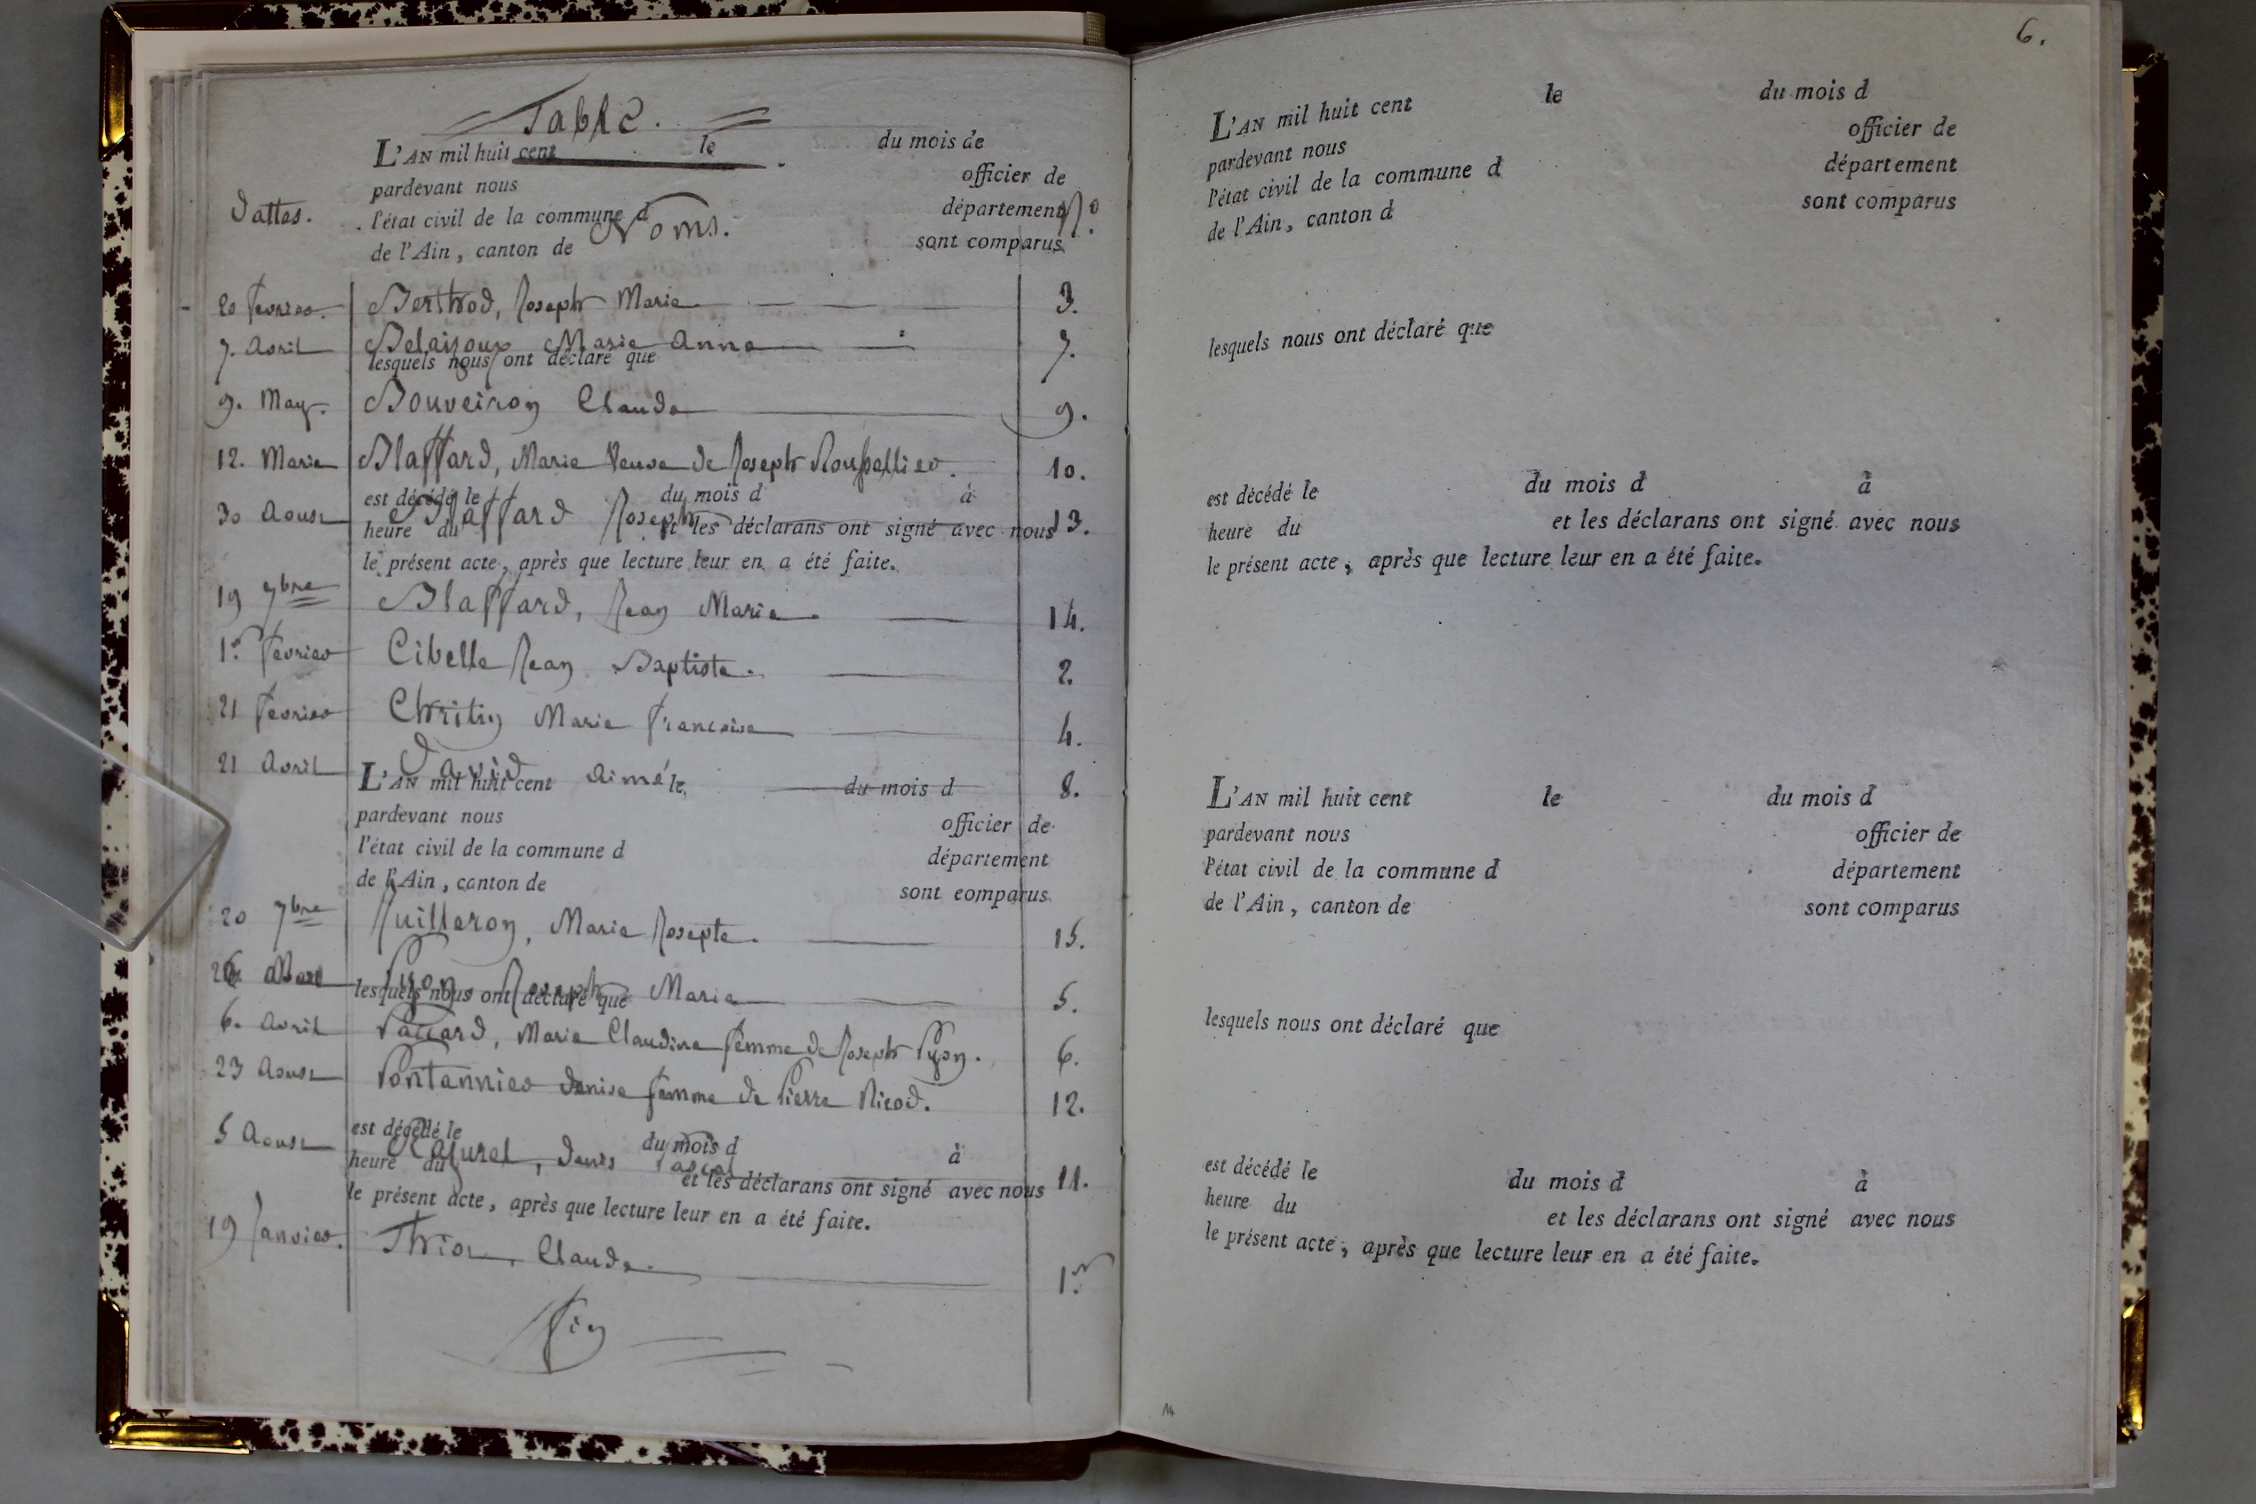 Table.
L'AN mil huit cent le du mois de
pardevant nous officier de
dattes. l'état civil de la commune d Noms. département N.º
de l'Ain, canton de sont comparus
20 fevrier. Berthod, Joseph Marie 3.
7. avril Belaisoux Marie Anne 7.
lesquels nous ont déclaré que
9. May. Bouveiron Claude 9.
12. Blaffard, Marie Veuve de Joseph 10.
est décédé le du mois d à
30 Aoust Blaffard Joseph 13.
heure du et les déclarans ont signé avec nous
le présent acte, après que lecture leur en a été faite.
19 7bre Blaffard, Jean Marie 14.
1.er fevrier Cibelle Jean Baptiste. 2.
21 fevrier Chritin Marie francoise 4.
21 avril David Aimé 8.
L'AN mil huit cent le du mois d
pardevant nous officier de
l'état civil de la commune d département
de l'Ain, canton de sont eomparus
20 7bre Juilleron, Marie Josepte. 15.
Pyon, Joseph Marie 5.
lesquels nous ont déclaré que
6. avril Paccard, Marie Claudine femme de Joseph Pyon. 6.
23 Aoust Pontannier denise femme de Pierre Nicod. 12.
est décédé le du mois d à
5 Aoust denis Pascal 11.
heure du et les déclarans ont signé avec nous
le présent acte, après que lecture leur en a été faite.
19 Janvier. Claude. 1.er
fin
6.
L'AN mil huit cent le du mois d
pardevant nous officier de
l'état civil de la commune d département
de l'Ain, canton d sont comparus
lesquels nous ont déclaré que
est décédé le du mois d à
heure du et les déclarans ont signé avec nous
le présent acte, après que lecture leur en a été faite.
L'AN mil huit cent le du mois d
pardevant nous officier de
l'état civil de la commune d département
de l'Ain, canton de sont comparus
lesquels nous ont déclaré que
est décédé le du mois d à
heure du et les déclarans ont signé avec nous
le présent acte, après que lecture leur en a été faite.